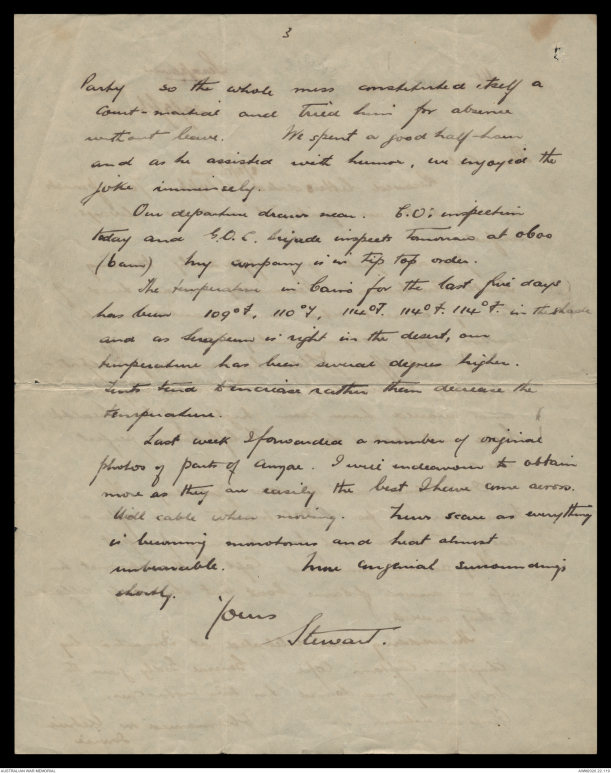 3
Party so the whole mess constituted itself a
Court-martial and tried him for absence
without leave. We spent a good half-hour
and as he assisted with humor, we enjoyed the
joke immensely.
Our departure draws near. C.O's inspection
today and G.O.C. brigade inspects tomorrow at 0600
(6am) my company is in tip top order.
The temperature in Cairo for the last five days
has been 109°F, 110°F, 114°F. 114°F. 114°F. in the shade
and as Serapeum is right in the desert, our
temperature has been several degrees higher.
Tents tend to increase rather than decrease the
temperature.
Last week I forwarded a number of original
photos of parts of Anzac. I will endeavour to obtain
more as they are easily the best I have come across.
Will cable when moving. News scarce as everything
is becoming monotonous and heat almost
unbearable. More congenial surroundings
shortly.
Yours
Stewart.
AUSTRALIAN WAR MEMORIAL